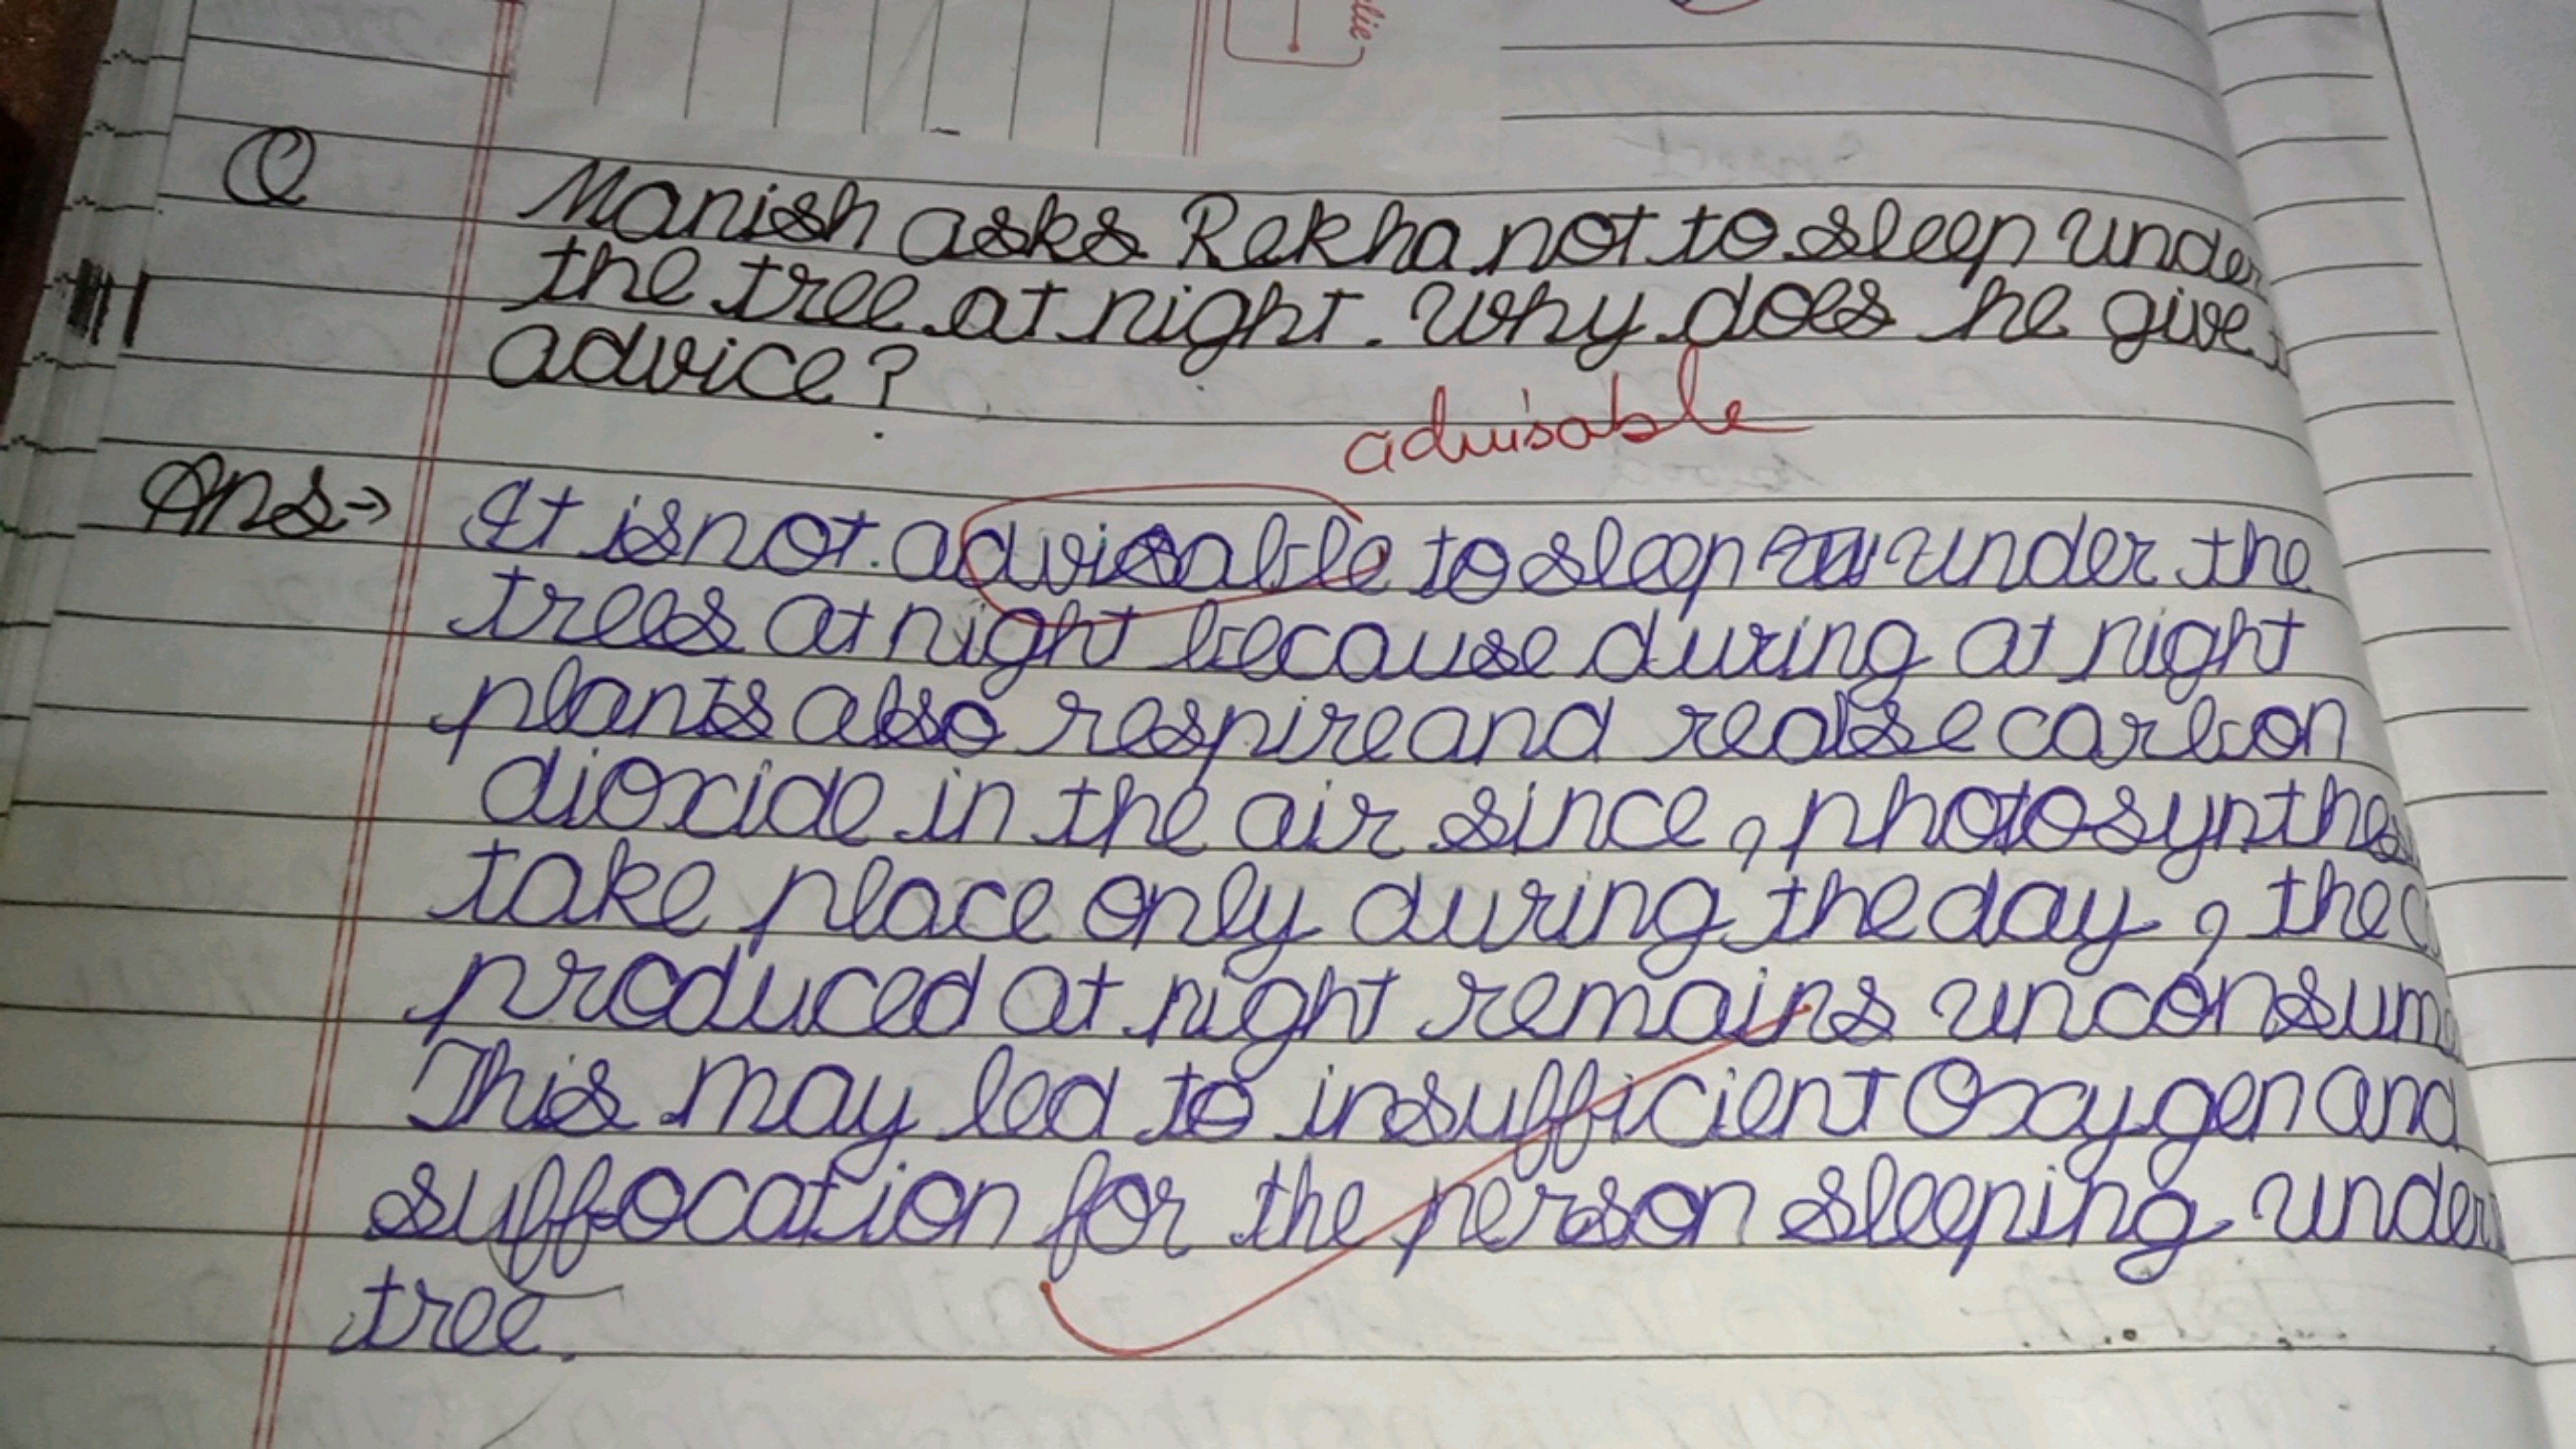 Q Manish asks Rekha not to sleep under
the tree at night. Why does he give
advice?
advisable
Ans→ It is not advisable to sleep under the
trees at night because during at night
plants also respire and realse carbon
dioxide in the air since, photosynthes
take place only during the day, the
produced at night remains unconsum
This may led to insufficient Oxygen and
suffocation for the person sleeping under
tree.